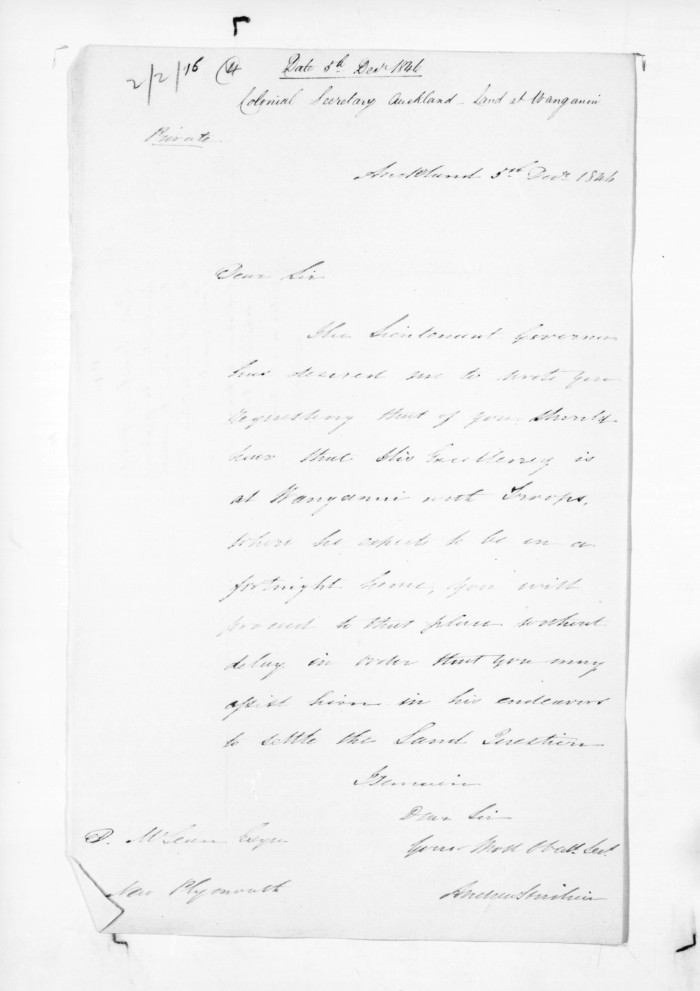 2/2/16 (4 Date 5th Decr 1846
Colonial Secretary Auckland - Land at Wanganui
Private
Auckland 5th Decr 1846
Dear Sir
The Lieutenant Governor
has desired me to write you
requesting that if you should
hear that His Excellency is
at Wanganui with Troops,
where he expects to be in a
fortnight hence, you will
proceed to that place without
delay in order that you may
assist him in his endeavors
to settle the Land Question
I remain
Dear Sir
Your Most Obedt. Servt.
Andrew Sinclair
D. McLean Esqre
New Plymouth